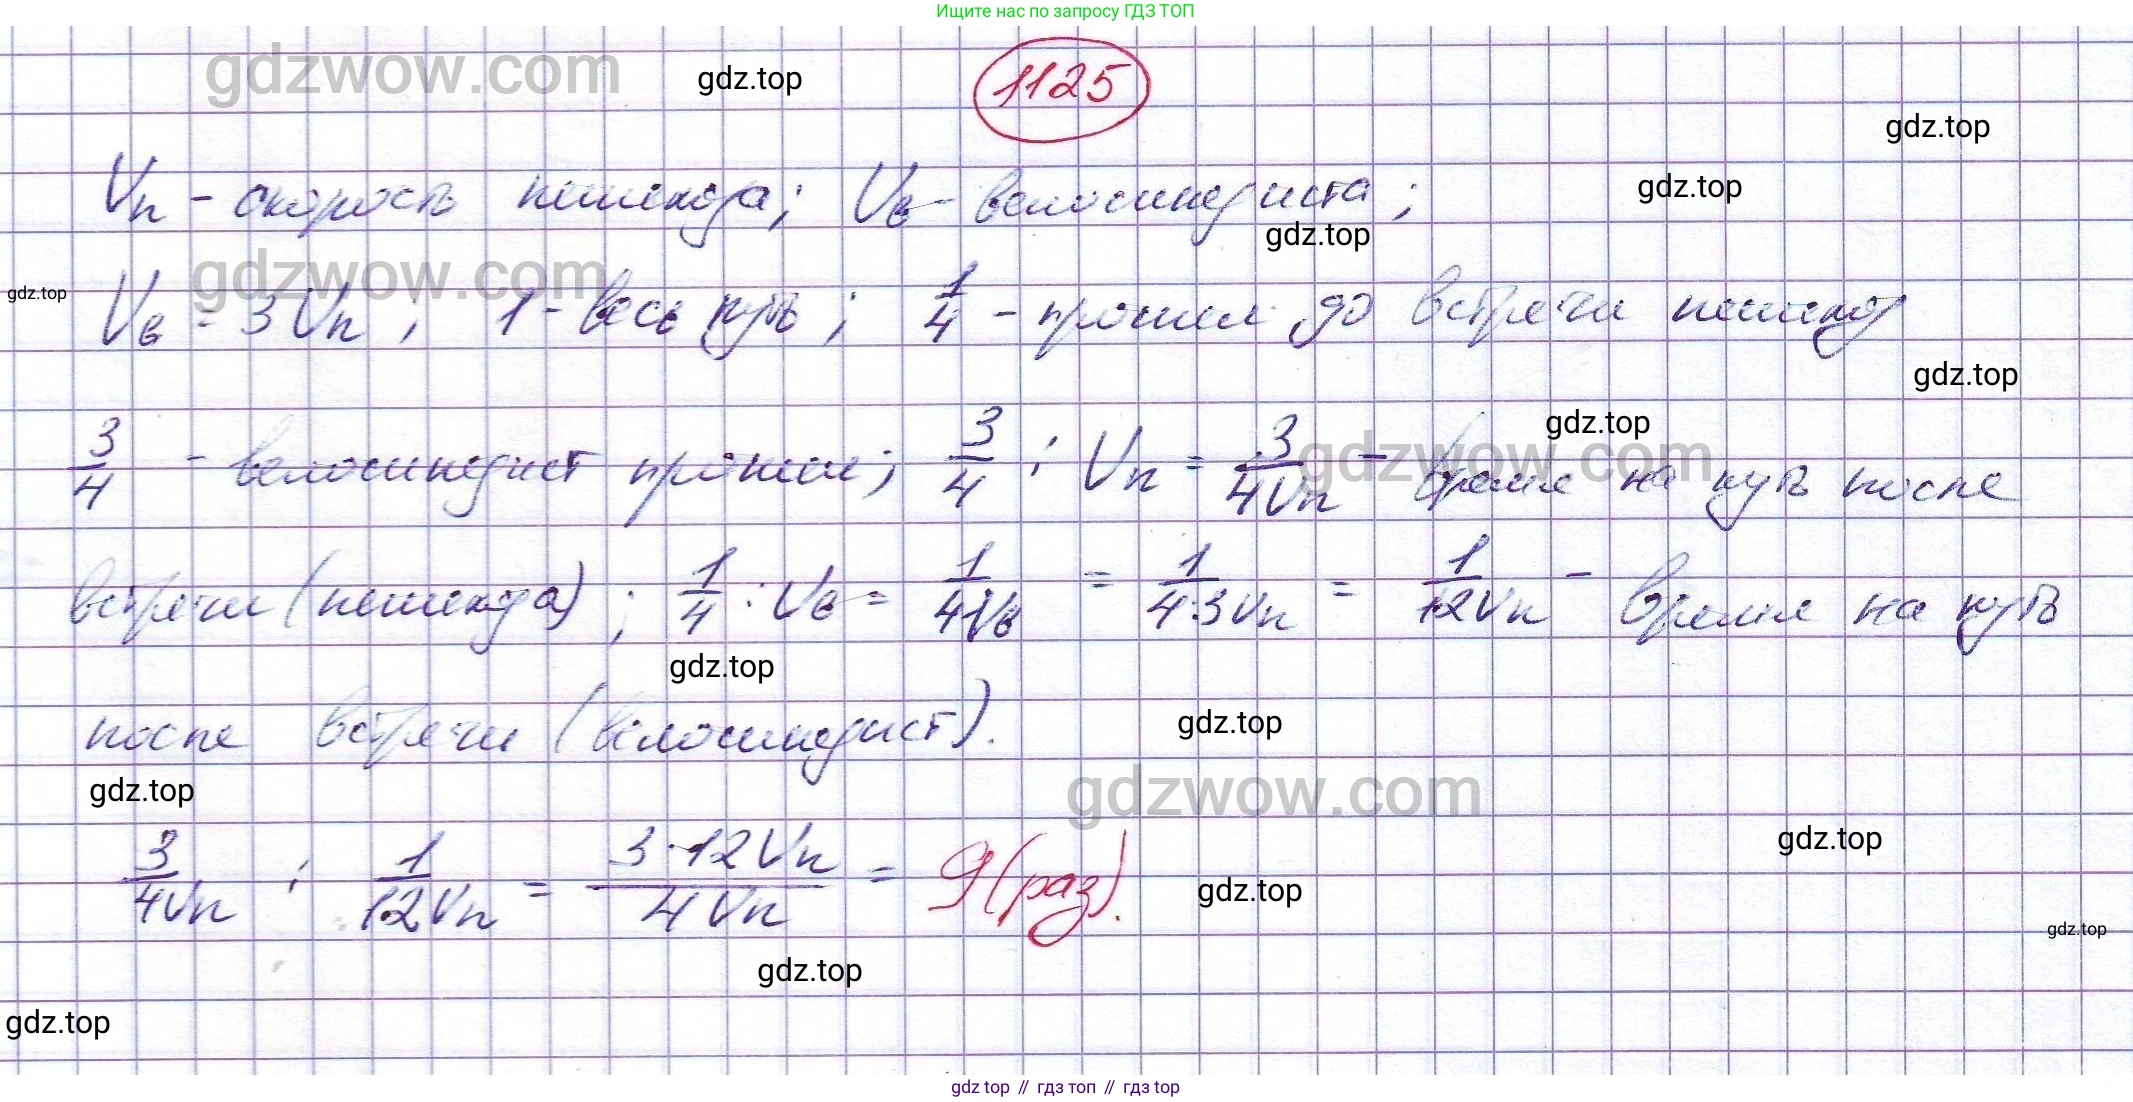 Ищите нас по запросу ГДЗ ТОП
gdzwow.com
gdz.top
1125
gdz.top
Vп - скорость пешехода; Vв - велосипедиста;
gdz.top
gdz.top
gdzwow.com
gdz.top
Vв = 3Vп; 1 - весь путь; 1/4 - прошел до встречи пешеход
gdz.top
gdz.top
gdzwow.com
3/4 - велосипедист прошел; 3/4 : Vп = 3/4Vп - время на путь после
встречи (пешехода); 1/4 : Vв = 1/4Vв = 1/4·3Vп = 1/12Vп - время на путь
gdz.top
после встречи (велосипедист).
gdz.top
gdz.top
gdzwow.com
gdz.top
3/4Vп : 1/12Vп = 3·12Vп/4Vп = 9 (раз).
gdz.top
gdz.top
gdz.top
gdz.top
gdz top // гдз топ // гдз top